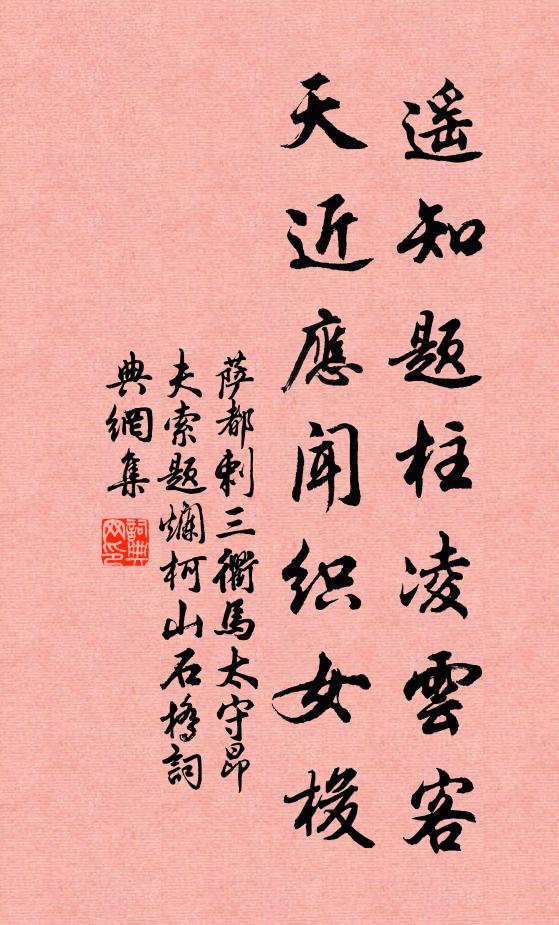 遥知题柱凌雲客
天近應闻织女梭
萨都剌三衢馬太守昂
夫索题爛柯山石橋詞
典網集
詞典网印